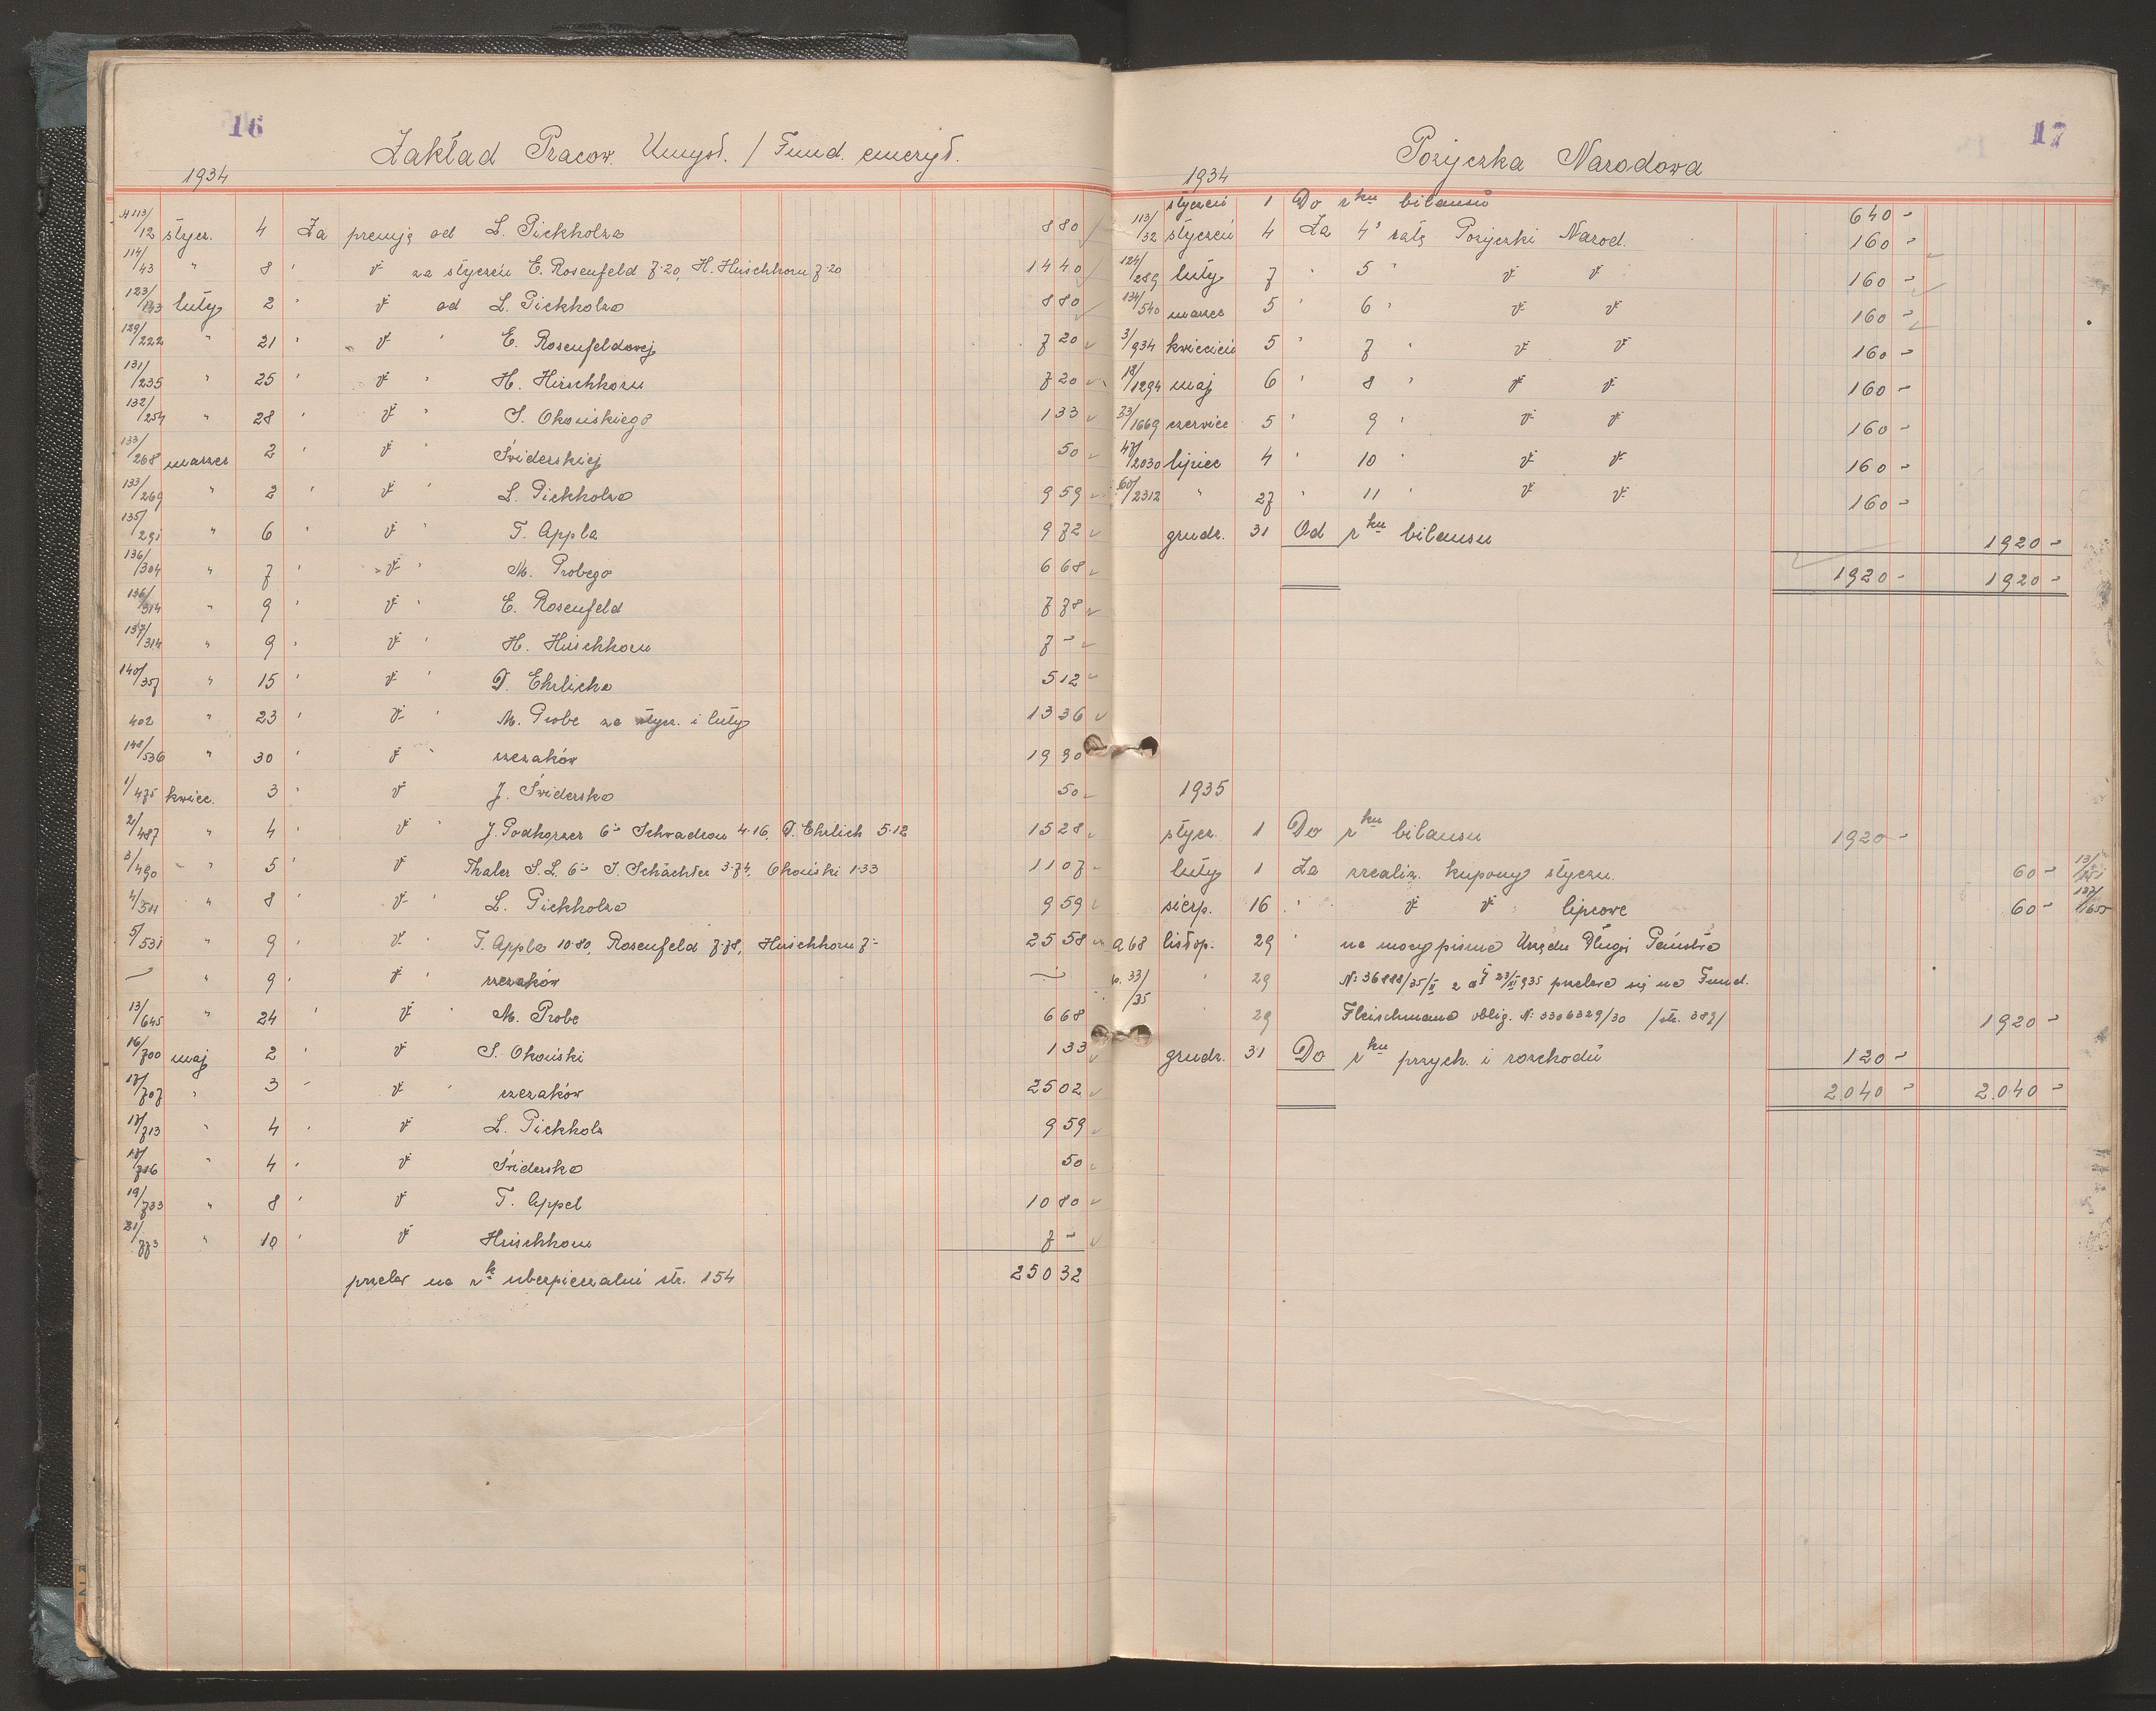 16
Zakład Pracow. Umysł. / Fund. emeryt.
1934
113/12 stycz. 4 Za premję od L. Pickholza 8 80
114/43 " 8 " " za styczeń E. Rosenfeld 7·20, H. Hirschhorn 7·20 14 40
123/143 luty 2 " " od L. Pickholza 8 80
129/222 " 21 " " " E. Rosenfeldowej 7 20
131/235 " 25 " " " H. Hirschhorn 7 20
132/254 " 28 " " " S. Okońskiego 1 33
133/268 marzec 2 " " " Świderskiej 50
133/269 " 2 " " " L. Pickholza 9 59
135/291 " 6 " " " T. Appla 9 72
136/304 " 7 " " " M. Probego 6 68
136/314 " 9 " " " E. Rosenfeld 7 78
137/314 " 9 " " " H. Hirschhorn 7 -
140/357 " 15 " " " D. Ehrlicha 5 12
402 " 23 " " " M. Probe za stycz. i luty 13 36
148/536 " 30 " " " rzezaków 19 90
1/475 kwiec. 3 " " J. Świderska 50
2/487 " 4 " " " J. Podhorzer 6·- Schwadron 4·16, D. Ehrlich 5·12 15 28
3/490 " 5 " " Thaler S. L. 6·- S. Schächter 3·74, Okoński 1·33 11 07
4/511 " 8 " " " L. Pickholza 9 59
5/531 " 9 " " " T. Appla 10·80, Rosenfeld 7·78, Hirschhorn 7·- 25 58
— " 9 " " " rzezaków —
13/645 " 24 " " " M. Probe 6 68
16/700 maj 2 " " S. Okoński 1 33
17/707 " 3 " " " rzezaków 25 02
17/713 " 4 " " L. Pickholz 9 59
17/716 " 4 " " Świderska 50
19/733 " 8 " " T. Appel 10 80
21/773 " 10 " " Hirschhorn 7 -
przelew na rk ubezpieczalni str. 154 250 32
17
Pożyczka Narodowa
1934
styczeń 1 Do rku bilansu 640 -
113/32 styczeń 4 Za 4' ratę Pożyczki Narod. 160 -
124/289 luty 7 " 5 " " " 160 -
134/540 marzec 5 " 6 " " " 160 -
3/934 kwiecień 5 " 7 " " " 160 -
12/1294 maj 6 " 8 " " " 160 -
33/1669 czerwiec 5 " 9 " " " 160 -
47/2030 lipiec 4 " 10 " " " 160 -
60/2312 " 27 " 11 " " " 160 -
grudz. 31 Od rku bilansu 1920 -
1920 - 1920 -
1935
stycz. 1 Do rku bilansu 1920 -
luty 1 Za zrealiz. kupony styczn. 60 -
sierp. 16 " " " lipcowe 60 -
a 68 listop. 29 " na mocy pisma Urzędu Długu Państwa
p. 33/35 " 29 N: 36888/35/II z dt 23/XI 935 przelewa się na Fund.
" 29 Fleischmana oblig. N: 3306329/30 /str. 389/ 1920 -
grudz. 31 Do rku przych. i rozchodu 120 -
2.040 - 2.040 -